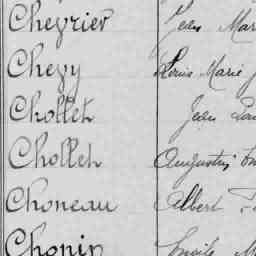 Chevrier Jean Mar
Chevy Louis Marie J
Chollet Jean
Chollet Augustin
Choneau Albert
Chopin Emile M